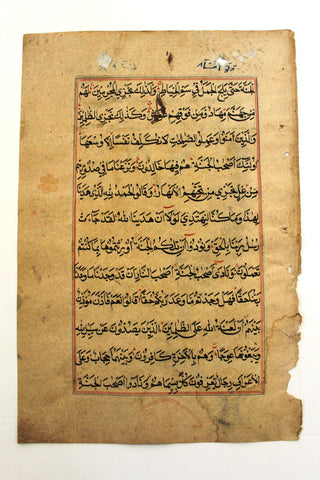 الجنة حتى يلج الجمل في سم الخياط وكذلك نجزي المجرمين لهم
من جهنم مهاد ومن فوقهم غواش وكذلك نجزي الظالمين
والذين آمنوا وعملوا الصالحات لا نكلف نفسا إلا وسعها
أولئك أصحاب الجنة هم فيها خالدون ونزعنا ما في صدورهم
من غل تجري من تحتهم الأنهار وقالوا الحمد لله الذي هدانا
لهذا وما كنا لنهتدي لولا أن هدانا الله لقد جاءت
رسل ربنا بالحق ونودوا أن تلكم الجنة أورثتموها بما كنتم
تعملون ونادى أصحاب الجنة أصحاب النار أن قد وجدنا ما وعدنا
ربنا حقا فهل وجدتم ما وعد ربكم حقا قالوا نعم فأذن مؤذن
بينهم أن لعنة الله على الظالمين الذين يصدون عن سبيل الله
ويبغونها عوجا وهم بالآخرة كافرون وبينهما حجاب وعلى
الأعراف رجال يعرفون كلا بسيماهم ونادوا أصحاب الجنة